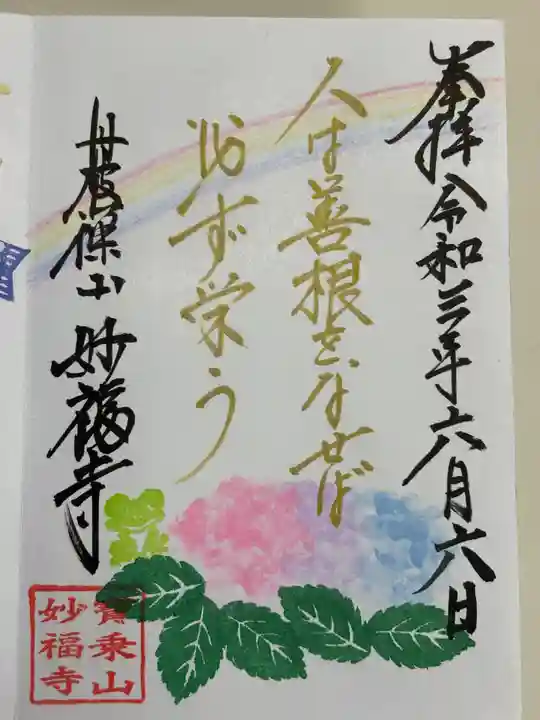 奉拝 令和三年六月六日
人は善根をなせば
必ず栄う
丹波保小 妙福寺
寶乗山
妙福寺